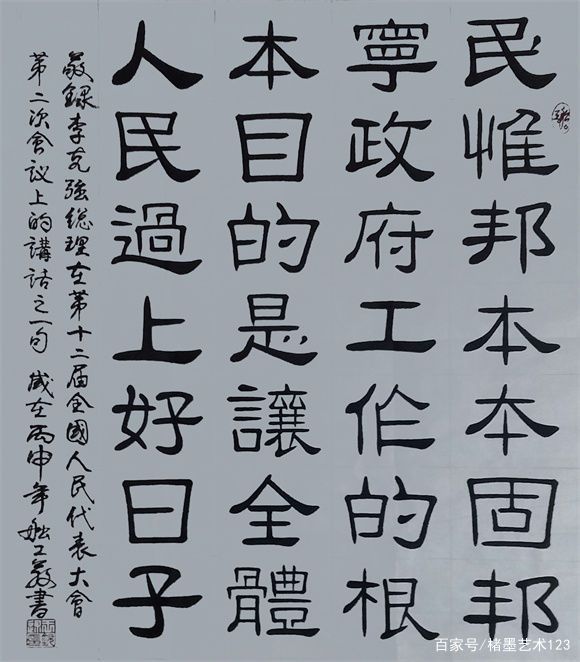 民惟邦本本固邦
寧政府工作的根
本目的是讓全體
人民過上好日子
敬録李克强総理在第十二届全國人民代表大會
第二次會议上的講話之一句 歲在丙申年敬書
百家号/楮墨艺术123